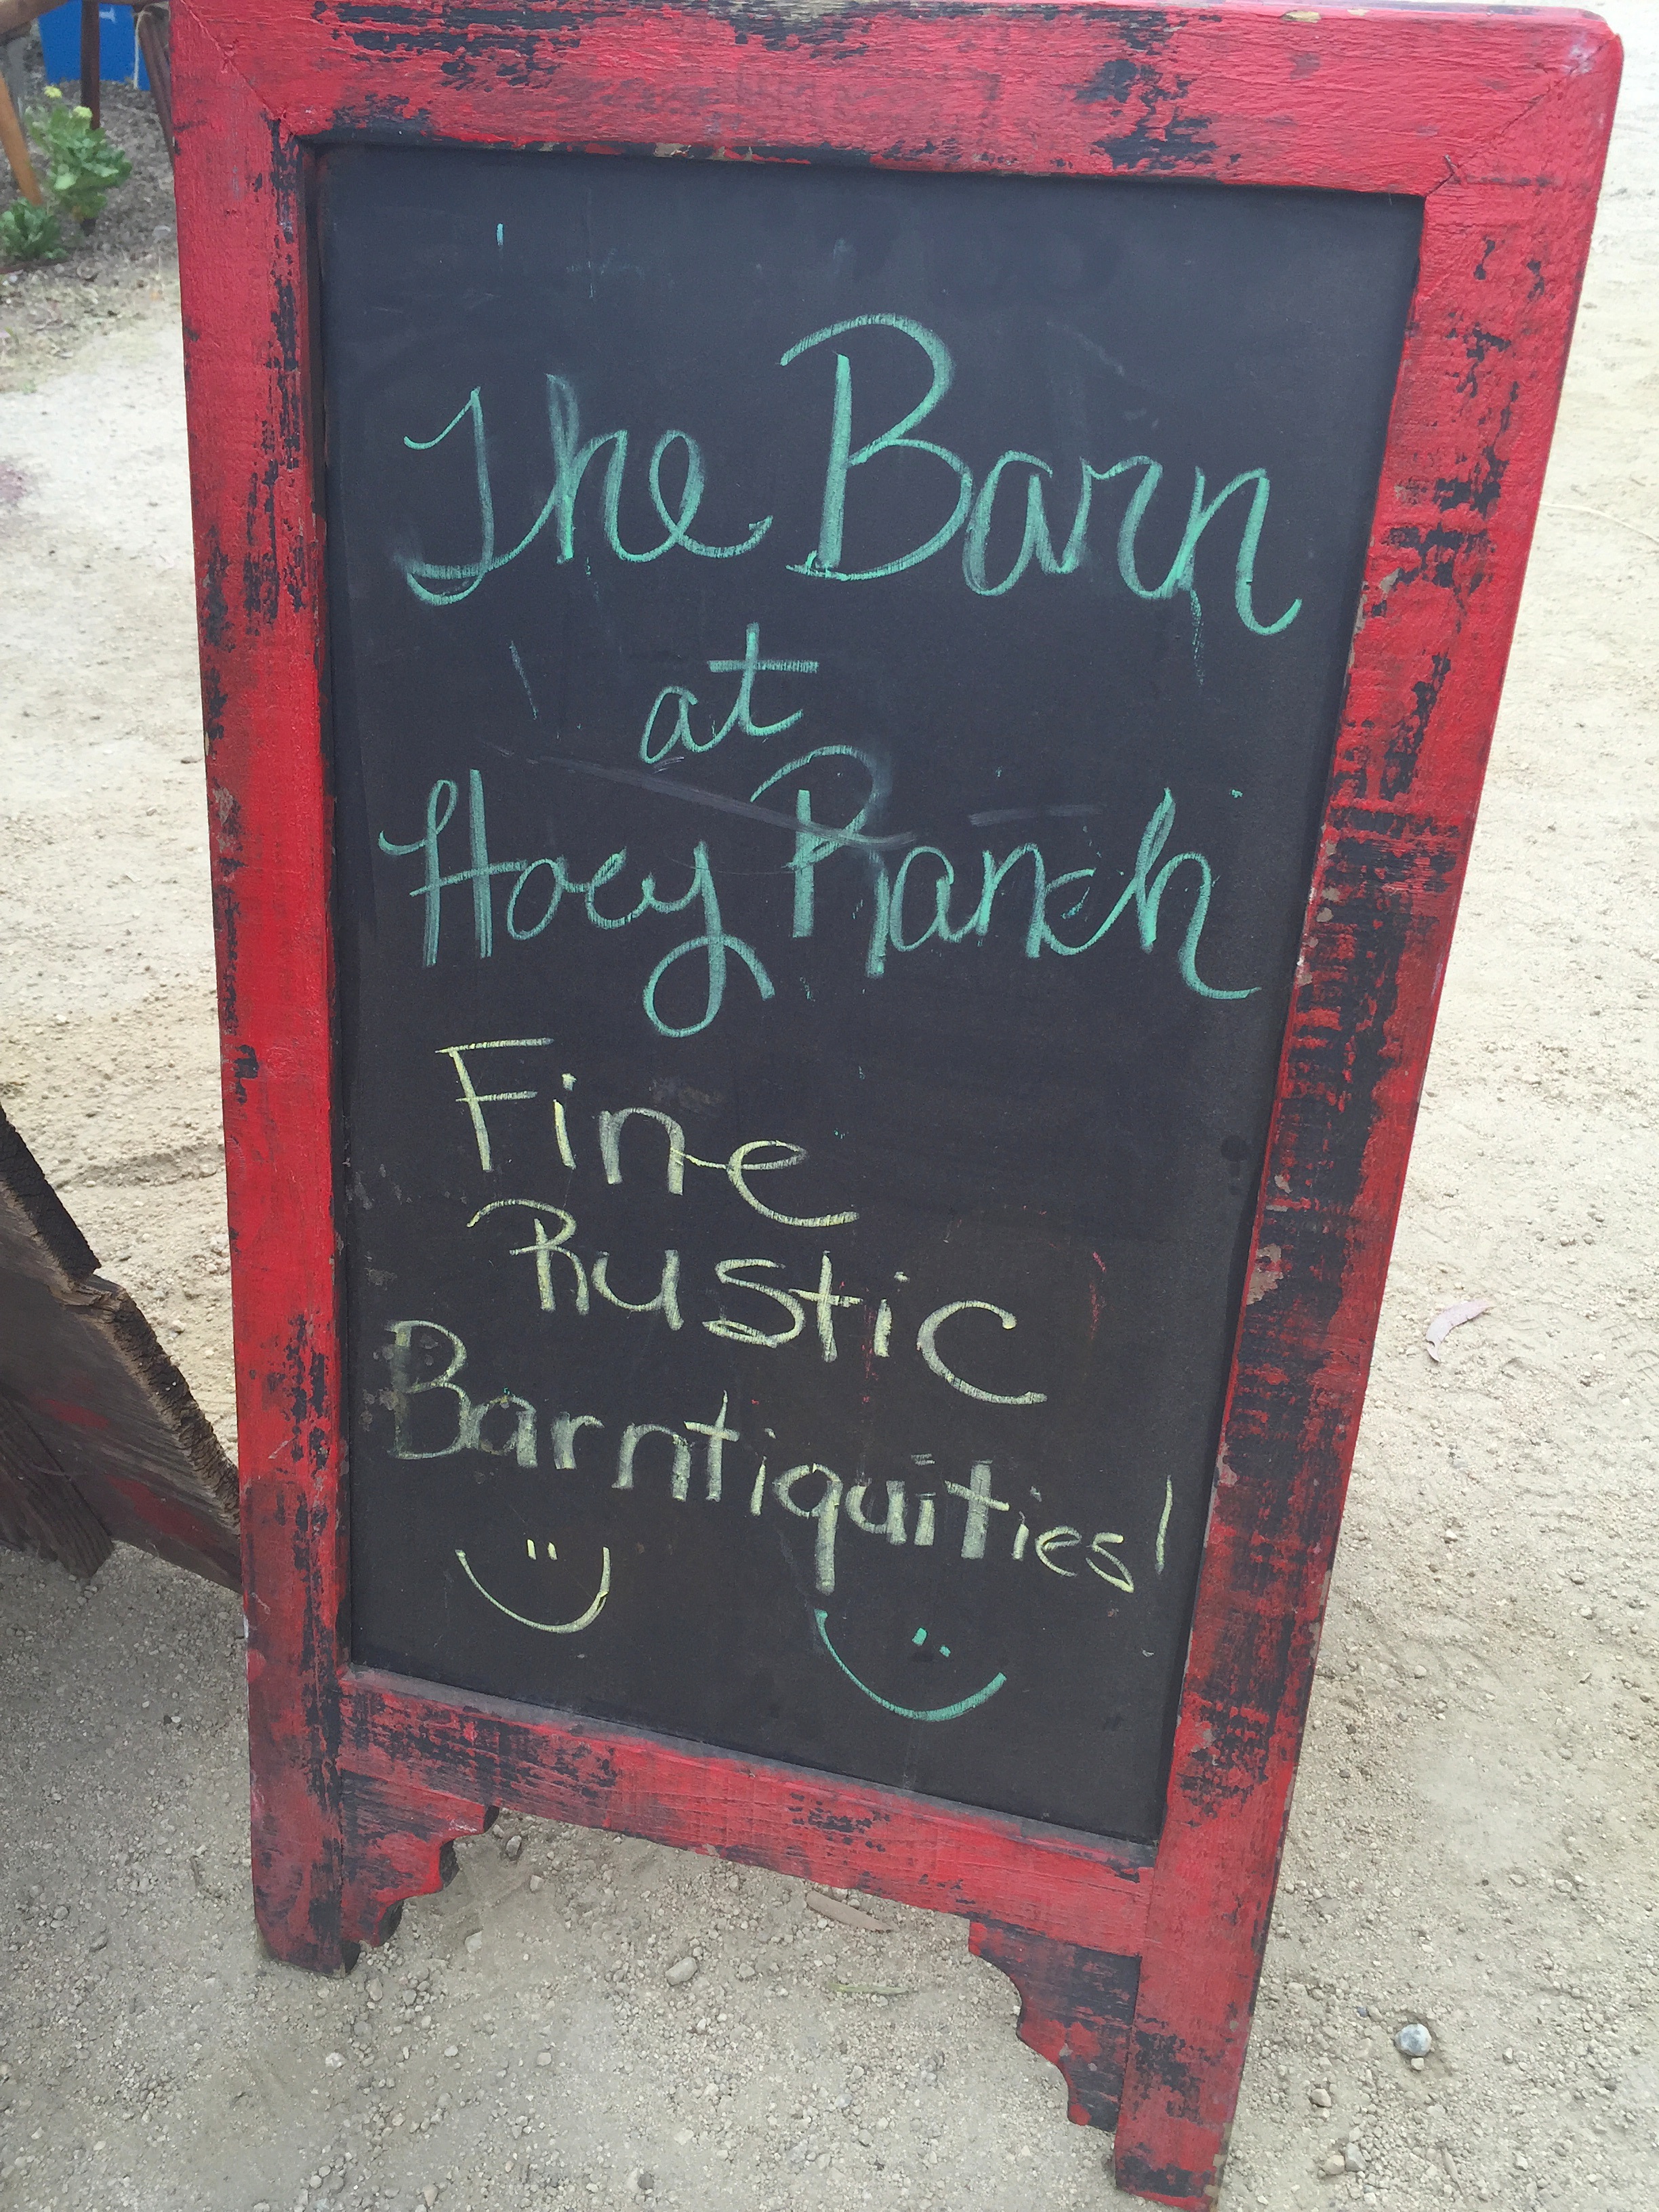 The Barn
at
Hoey Ranch
Fine
Rustic
Barntiquities!